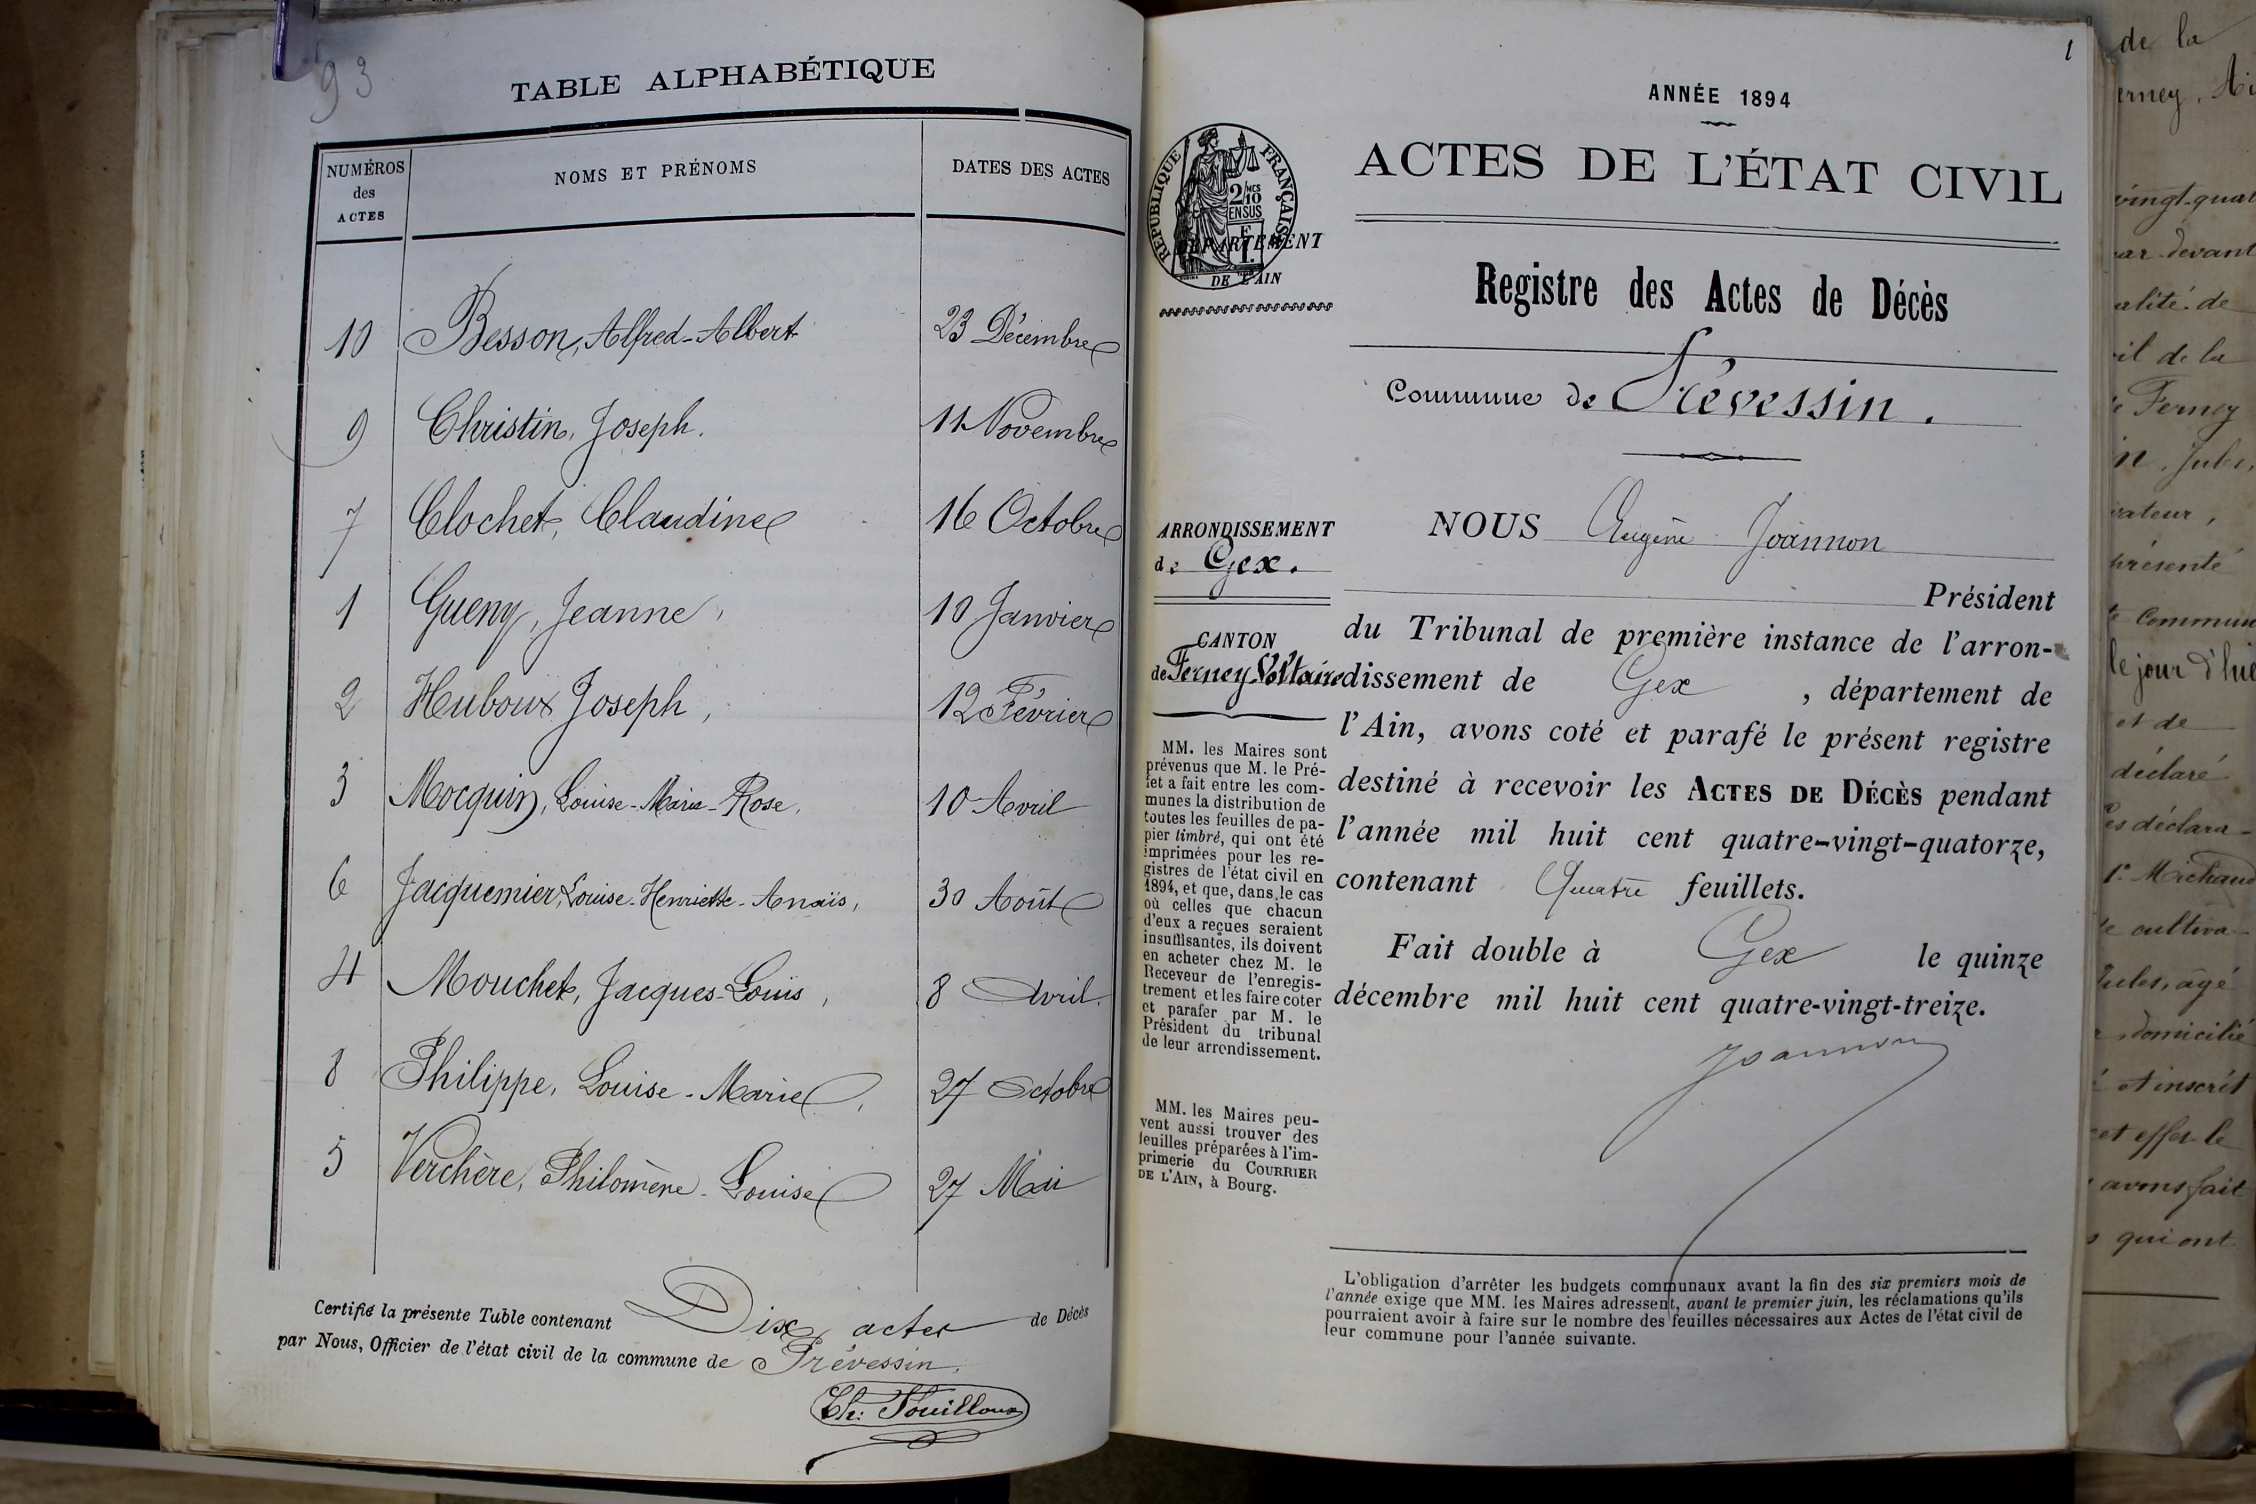 93
TABLE ALPHABÉTIQUE
NUMÉROS des ACTES
NOMS ET PRÉNOMS
DATES DES ACTES
10 Besson, Alfred-Albert 23 Décembre
9 Christin, Joseph. 11 Novembre
7 Clochet, Claudine 16 Octobre
1 Gueny, Jeanne, 10 Janvier
2 Huboux Joseph, 12 Février
3 Mocquin, Louise-Marie-Rose, 10 Avril
6 Jacquemier, Louise-Henriette-Anaïs, 30 Août
4 Mouchet, Jacques-Louis, 8 Avril.
8 Philippe, Louise-Marie, 27 Octobre
5 Verchère, Philomène-Louise 27 Mai
Certifié la présente Table contenant Dix actes de Décès
par Nous, Officier de l'état civil de la commune de Prévessin.
Ch: Fouilloux
1
ANNÉE 1894
ACTES DE L'ÉTAT CIVIL
RÉPUBLIQUE FRANÇAISE
2/10 EN SUS
DÉPARTEMENT
DE L'AIN
Registre des Actes de Décès
Commune de Prévessin.
ARRONDISSEMENT
de Gex.
CANTON
de Ferney-Voltaire
MM. les Maires sont
prévenus que M. le Pré-
fet a fait entre les com-
munes la distribution de
toutes les feuilles de pa-
pier timbré, qui ont été
imprimées pour les re-
gistres de l'état civil en
1894, et que, dans le cas
où celles que chacun
d'eux a reçues seraient
insuffisantes, ils doivent
en acheter chez M. le
Receveur de l'enregis-
trement et les faire coter
et parafer par M. le
Président du tribunal
de leur arrondissement.
MM. les Maires peu-
vent aussi trouver des
feuilles préparées à l'im-
primerie du COURRIER
DE L'AIN, à Bourg.
NOUS Eugène Joannon
Président
du Tribunal de première instance de l'arron-
dissement de Gex, département de
l'Ain, avons coté et parafé le présent registre
destiné à recevoir les ACTES DE DÉCÈS pendant
l'année mil huit cent quatre-vingt-quatorze,
contenant Quatre feuillets.
Fait double à Gex le quinze
décembre mil huit cent quatre-vingt-treize.
Joannon
L'obligation d'arrêter les budgets communaux avant la fin des six premiers mois de
l'année exige que MM. les Maires adressent, avant le premier juin, les réclamations qu'ils
pourraient avoir à faire sur le nombre des feuilles nécessaires aux Actes de l'état civil de
leur commune pour l'année suivante.
de la
erney, Ai
vingt-quat
par devant
alité de
il de la
Ferney
Jules,
vateur,
présenté
commun
le jour d'hie
et de
déclaré
es déclara-
Michaud
cultiva-
Jules, âgé
domicilié
et inscrit
cet effet le
avons fait
qui ont